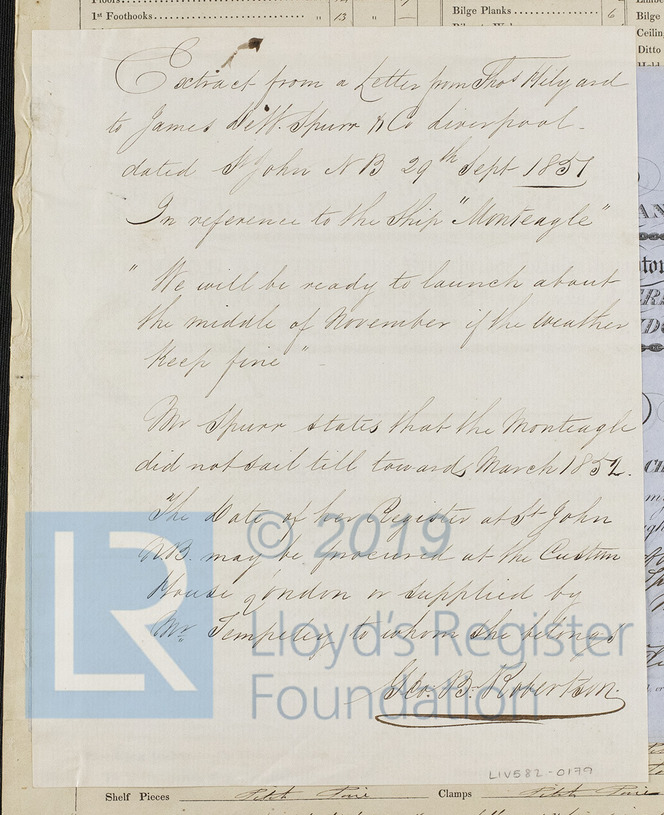 1st Foothooks " 13 "
Bilge Planks 6
Bilge
Ceilin
Ditto
Extract from a Letter from Thos Hilyard
to James DeW. Spurr & Co Liverpool -
dated St John N B 29th Sept 1851
In reference to the Ship "Monteagle"
" We will be ready to launch about
the middle of November if the weather
keep fine " -
Mr Spurr states that the Monteagle
did not sail till towards March 1852.
The Date of her Register at St John
NB. may be procured at the Custom
House London or supplied by
Mr Temperley to whom she belongs
Geo. B. Robertson.
© 2019
LR
Lloyd's Register
Foundation
LIV582-0179
Shelf Pieces Pitch Pine Clamps Pitch Pine